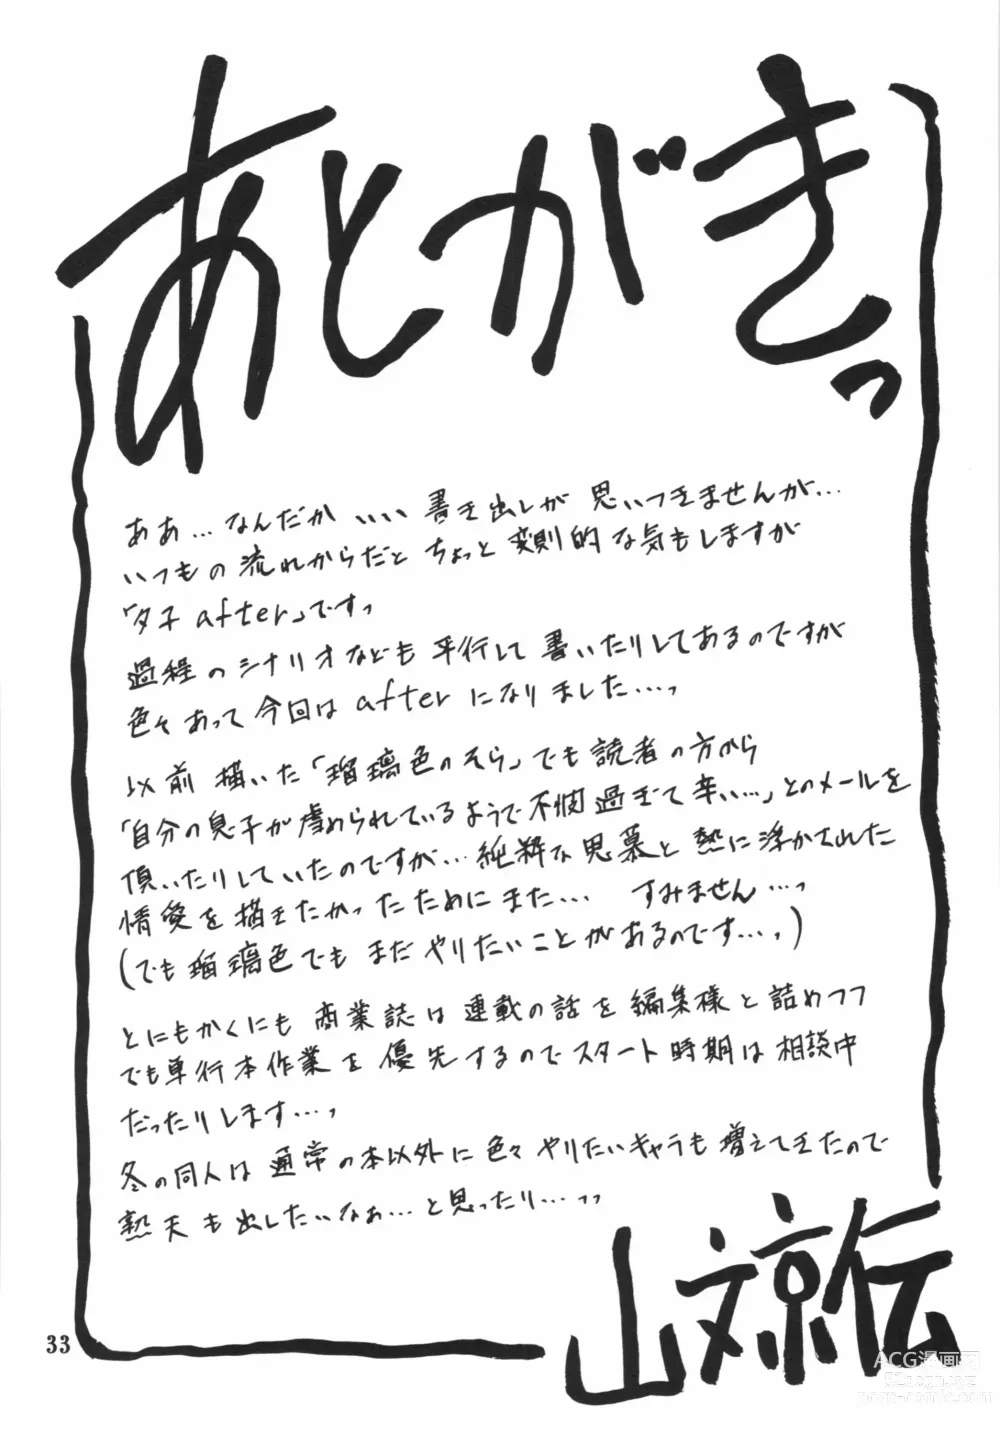 あとがきっ
ああ…なんだか いい書き出しが 思いつきませんが…
いつもの流れからだと ちょっと 変則的な気もしますが
「夕子 after」ですっ
過程のシナリオなども 平行して 書いたりしてあるのですが
色々あって今回は after になりました…っ
以前描いた「瑠璃色のそら」でも読者の方から
「自分の息子が虐められているようで不憫過ぎて辛い…」とのメールを
頂いたりしていたのですが…純粋な思慕と熱に浮かされた
情愛を描きたかったためにまた… すみません…っ
(でも瑠璃色でもまだやりたいことがあるのです…っ)
とにもかくにも 商業誌は連載の話を編集様と詰めつつ
でも単行本作業を優先するのでスタート時期は相談中
だったりします…っ
冬の同人は通常の本以外に色々やりたいキャラも増えてきたので
熟天も出したいなぁ…と思ったり…っっ
山文京伝
33
ACG漫画网